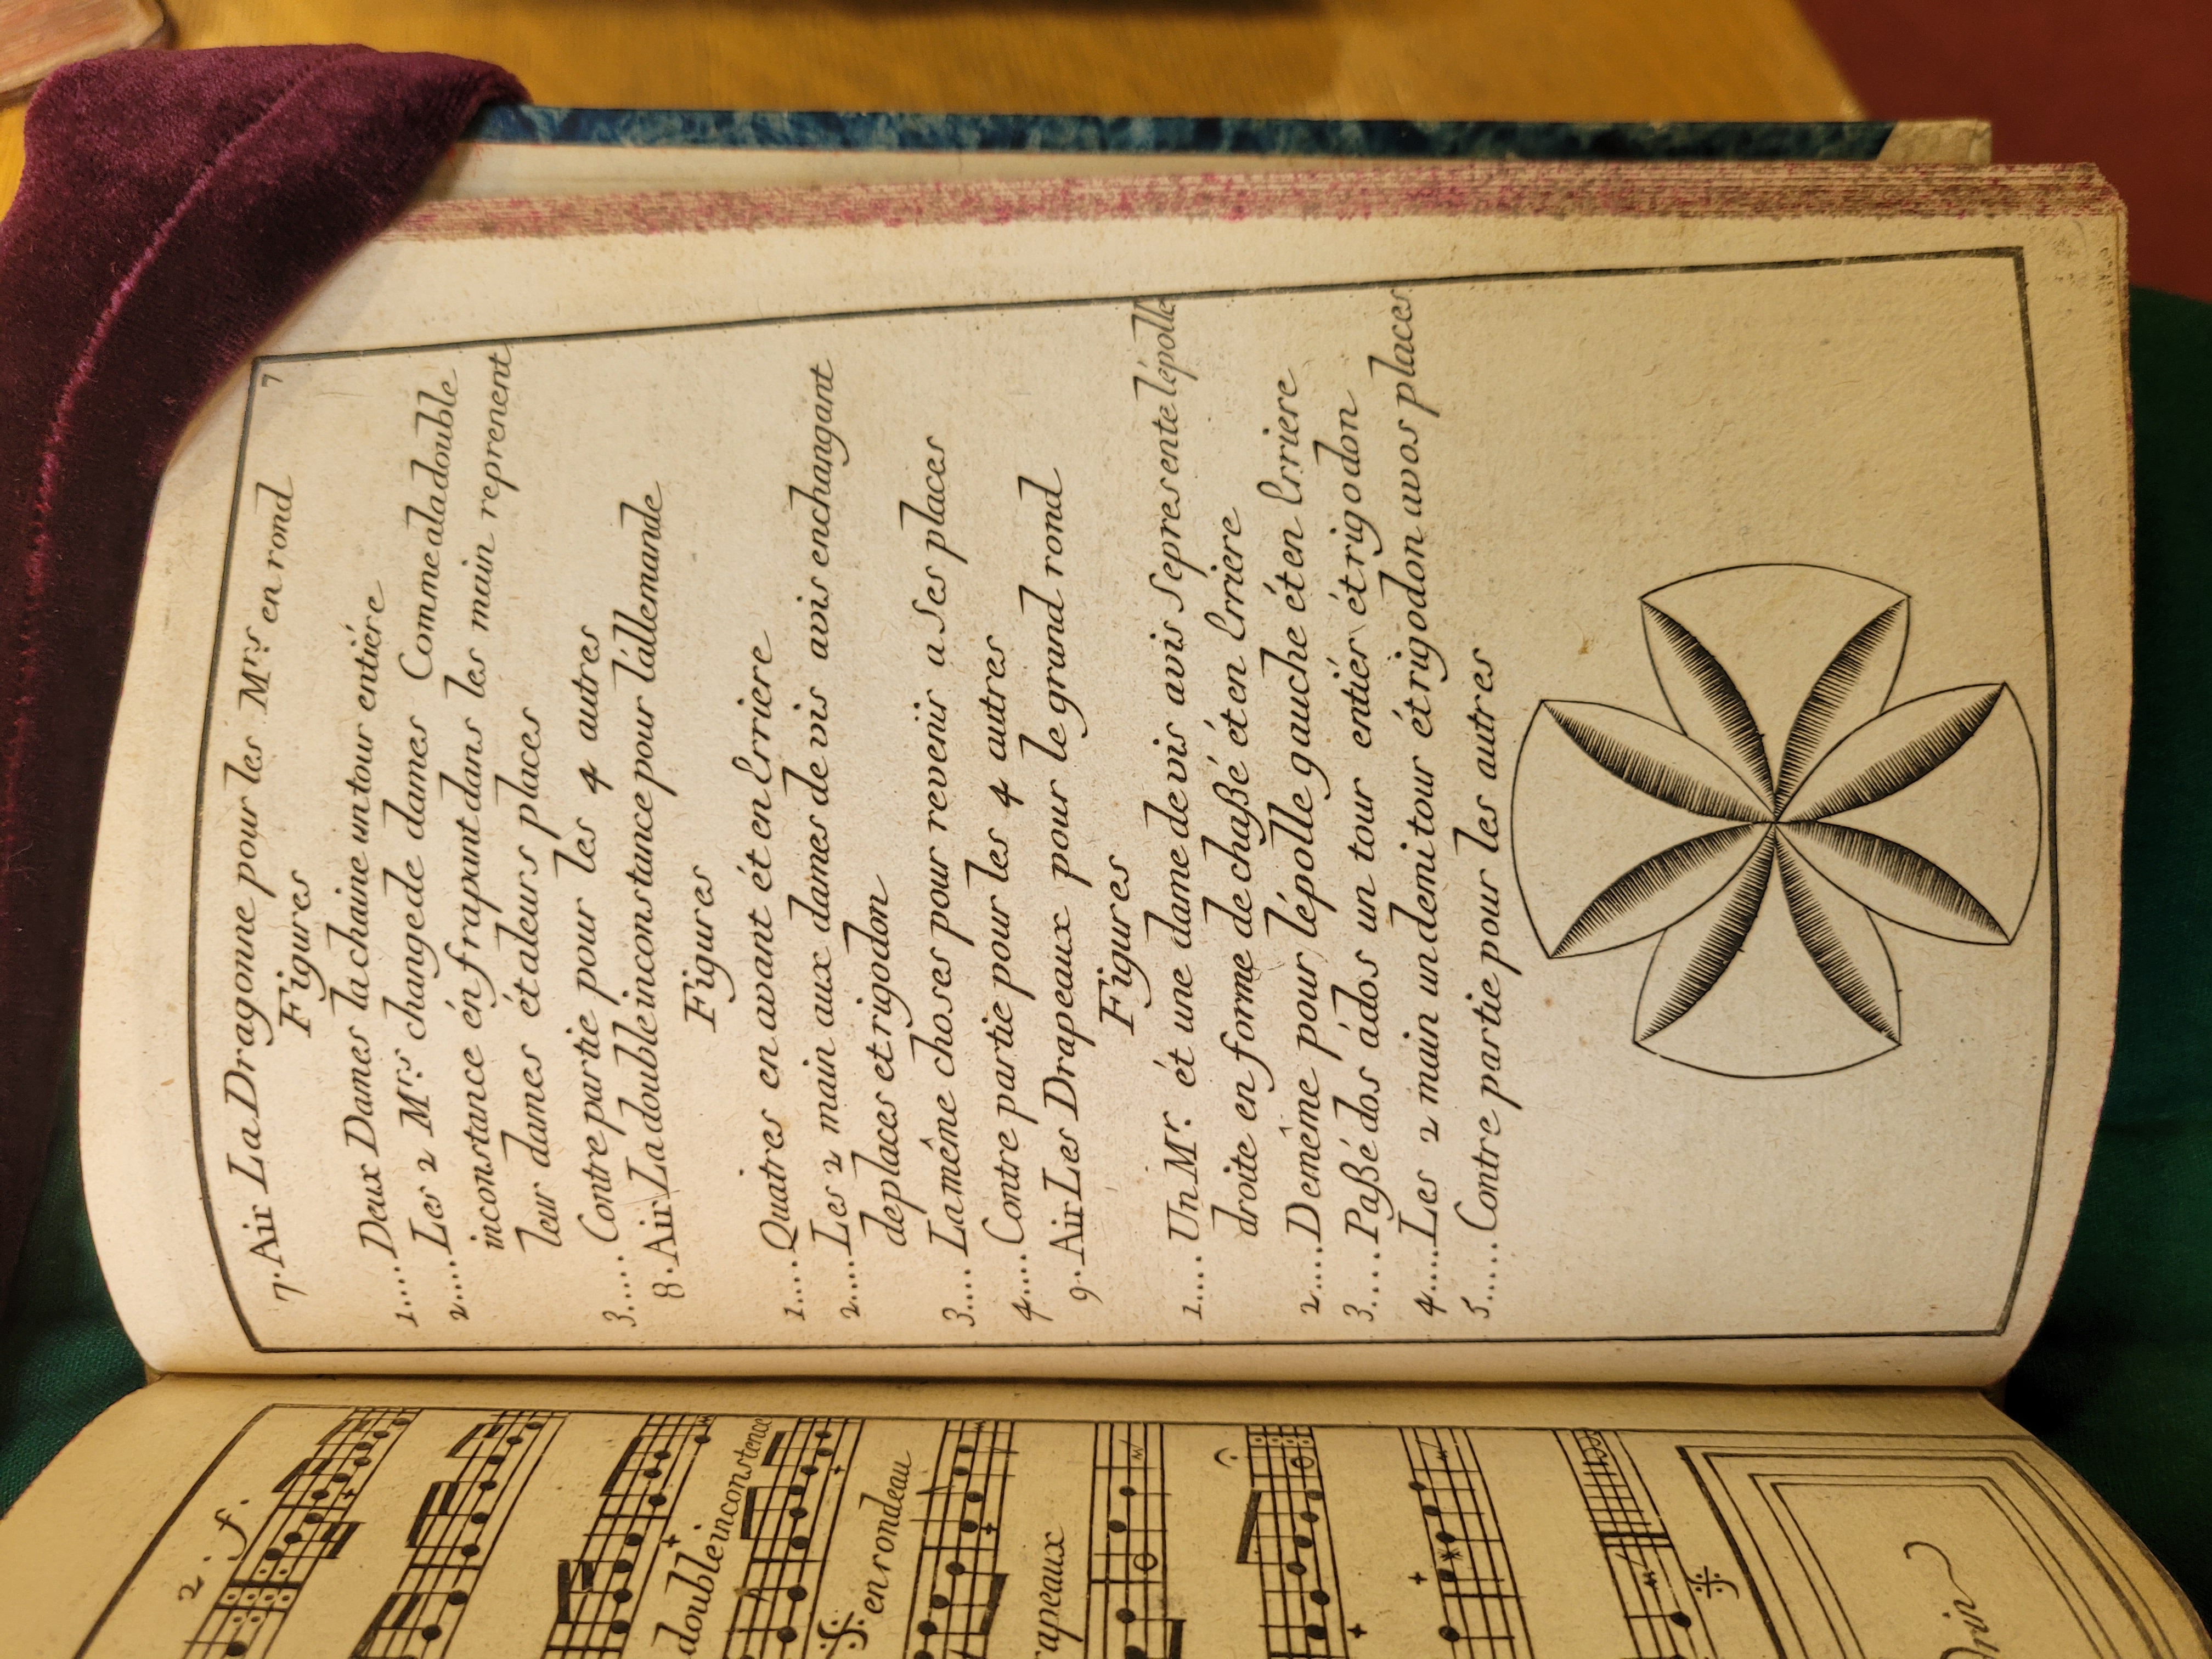 7
7. Air La Dragonne pour les Mrs. en rond
Figures
1..... Deux Dames la chaine un tour entiére
2.... Les 2 Mrs. change de dames Comme a la double
inconstance én frapant dans les main reprenent
leur dames ét a leurs places
3..... Contre partie pour les 4 autres
8. Air La double inconstance pour l'allemande
Figures
1.... Quatres en avant ét en Erriere
2..... Les 2 main aux dames de vis avis en changant
de places et rigodon
3.... La méme choses pour revenir a Ses places
4.... Contre partie pour les 4 autres
9.. Air Les Drapeaux pour le grand rond
Figures
1.... Un Mr. ét une dame de vis avis Se presente lépolle
droite en forme de chaßé ét en Erriere
2.... De méme pour lépolle gauche ét en Erriere
3..... Paßé dos ádos un tour entiér ét rigodon
4.... Les 2 main un demi tour ét rigodon avos places
5..... Contre partie pour les autres
2. f.
double inconstence
en rondeau
rapeaux